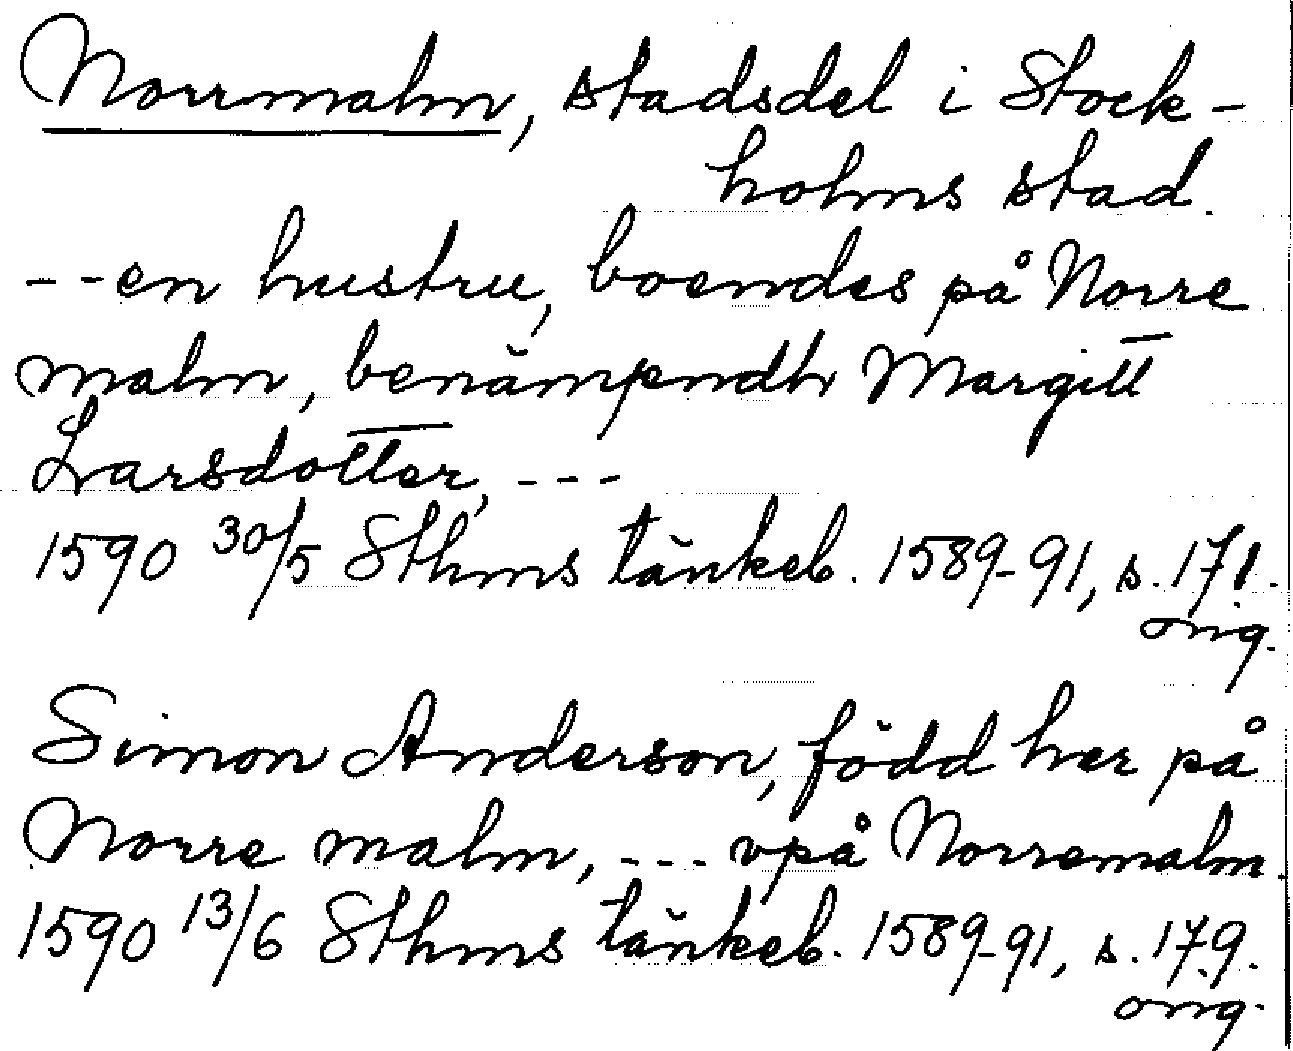 Norrmalm, stadsdel i Stock-
holms stad.
- - en hustru, boendes på Norre
malm, benämpndh Margitt
Larsdotter, - - -
1590 30/5 Sthms tänkeb. 1589-91, s. 171.
orig.
Simon Anderson, född her på
Norre malm, - - - vpå Norremalm.
1590 13/6 Sthms tänkeb. 1589-91, s. 179.
orig.